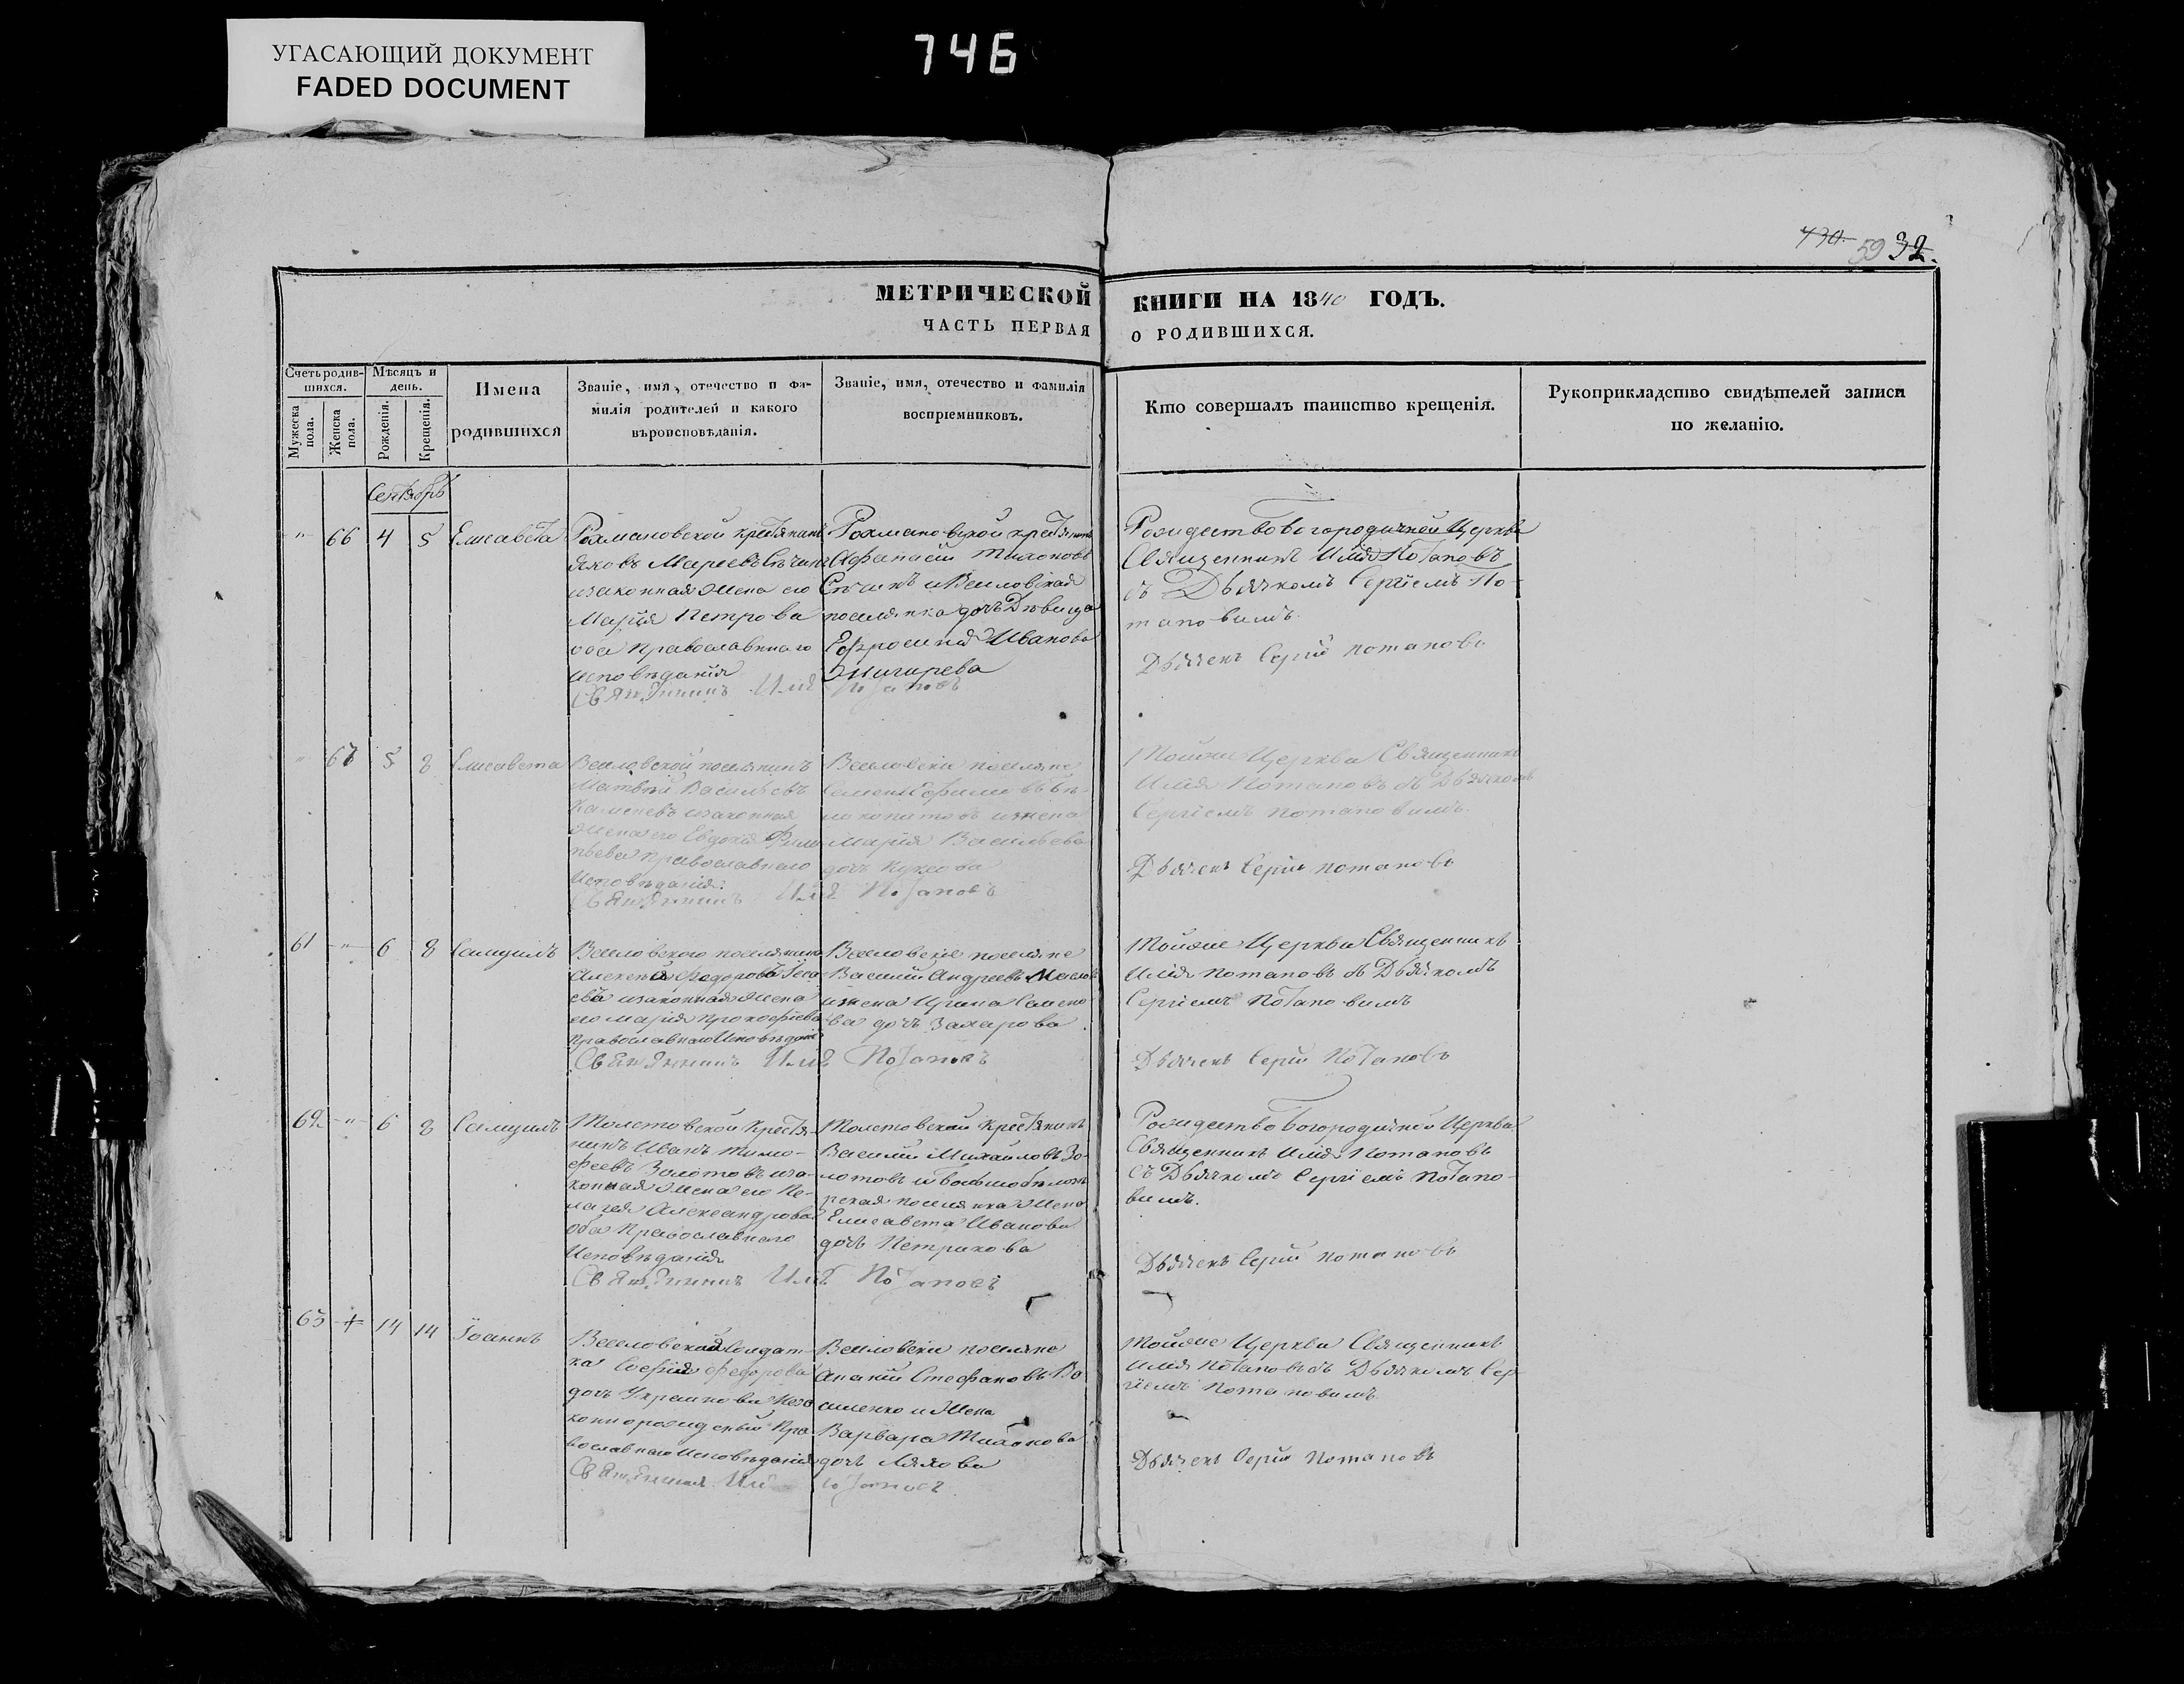 УГАСАЮЩИЙ ДОКУМЕНТ
FADED DOCUMENT
746
430
59 32.
МЕТРИЧЕСКОЙ КНИГИ НА 1840 ГОДЪ.
ЧАСТЬ ПЕРВАЯ О РОДИВШИХСЯ.
Счетъ родив-
шихся.
Мужеска пола.
Женска пола.
Мѣсяцъ и
день.
Рожденія.
Крещенія.
Имена
родившихся
Званіе, имя, отечество и фа-
милія родителей и какого
вѣроисповѣданія.
Званіе, имя, отечество и фамилія
воспріемниковъ.
Кто совершалъ таинство крещенія.
Рукоприкладство свидѣтелей записи
по желанію.
Сентябрь
" 66 4 5 Елисавета
Рохмановской крестянинъ
Яковъ
изаконная жена его
Марія Петрова
оба православнаго
исповѣданія
Рохмановской крестянинъ
Афанасій Тихоновъ
и Веиловская
поселянка дочь Девица
Ефросинія Иванова
Рождество Богородичной Церкви
Священникъ Илія Потаповъ
съ Дьячкомъ Сергіемъ По-
таповимъ.
Дьячекъ Сергій Потаповъ
Священникъ Илія Потаповъ
" 67 5 8 Елисавета
Веиловской поселянинъ
Матвѣй Васильевъ
Каменевъ изаконная
жена его Евдокія Фили
пьева православнаго
Исповѣданія.
Веиловскіи поселяне
Семенъ
ижена
Марія Васильева
дочь
Тойже Церкви Священникъ
Илія Потаповъ съ Дьячкомъ
Сергіемъ Потаповимъ.
Дьячекъ Сергій Потаповъ
Священникъ Илія Потаповъ
61 " 6 8 Самуилъ
Веиловского поселянина
Алексѣя Федорова
изаконная жена
его Марія Прокофіева
Православнаго Исповѣданія
Веиловскіе поселяне
Василій Андреевъ
ижена Ирина Семено-
ва дочь Захарова
Тойже Церкви Священникъ
Илія Потаповъ съ Дьячкомъ
Сергіемъ Потаповимъ
Дьячекъ Сергій Потаповъ
Священникъ Илія Потаповъ
62 " 6 8 Самуилъ
Молотовской крестя-
нинъ Иванъ Тимо-
феевъ Золотовъ иза-
конная жена его Пе-
лагея Александрова
Оба Православнаго
Исповѣданія
Молотовской крестянинъ
Василій Михайловъ Зо-
лотовъ и
рская поселянка жена
Елисавета Иванова
дочь Петрикова
Рождество Богородичной Церкви
Священникъ Илія Потаповъ
съ Дьячкомъ Сергіемъ Потапо-
вимъ.
Дьячекъ Сергій Потаповъ
Священникъ Илія Потаповъ
63 14 14 Іоаннъ
Веиловская Солдат-
ка Софія Федорова
дочь
Пра
вославнаго Исповѣданія
Веиловскіи поселяне
Ананій Стефановъ
и жена
Варвара Тихонова
дочь Ляхова
Тойже Церкви Священникъ
Илія Потаповъ съ Дьячкомъ Сер
гіемъ Потаповимъ.
Дьячекъ Сергій Потаповъ